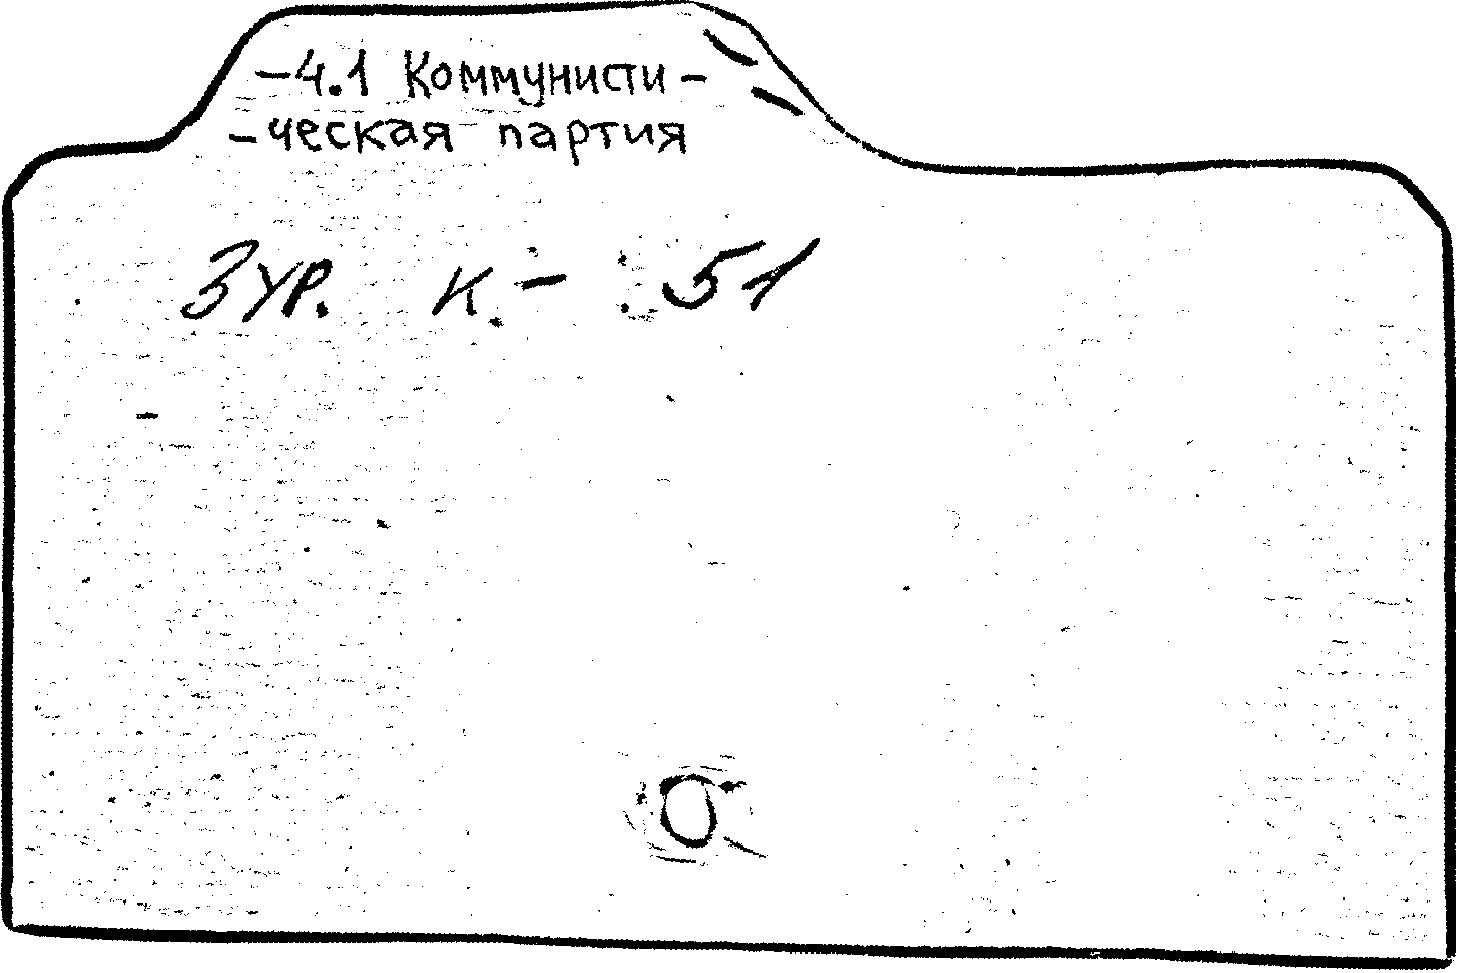 -4.1 Коммунисти-
-ческая партия
Зур. К.- 51